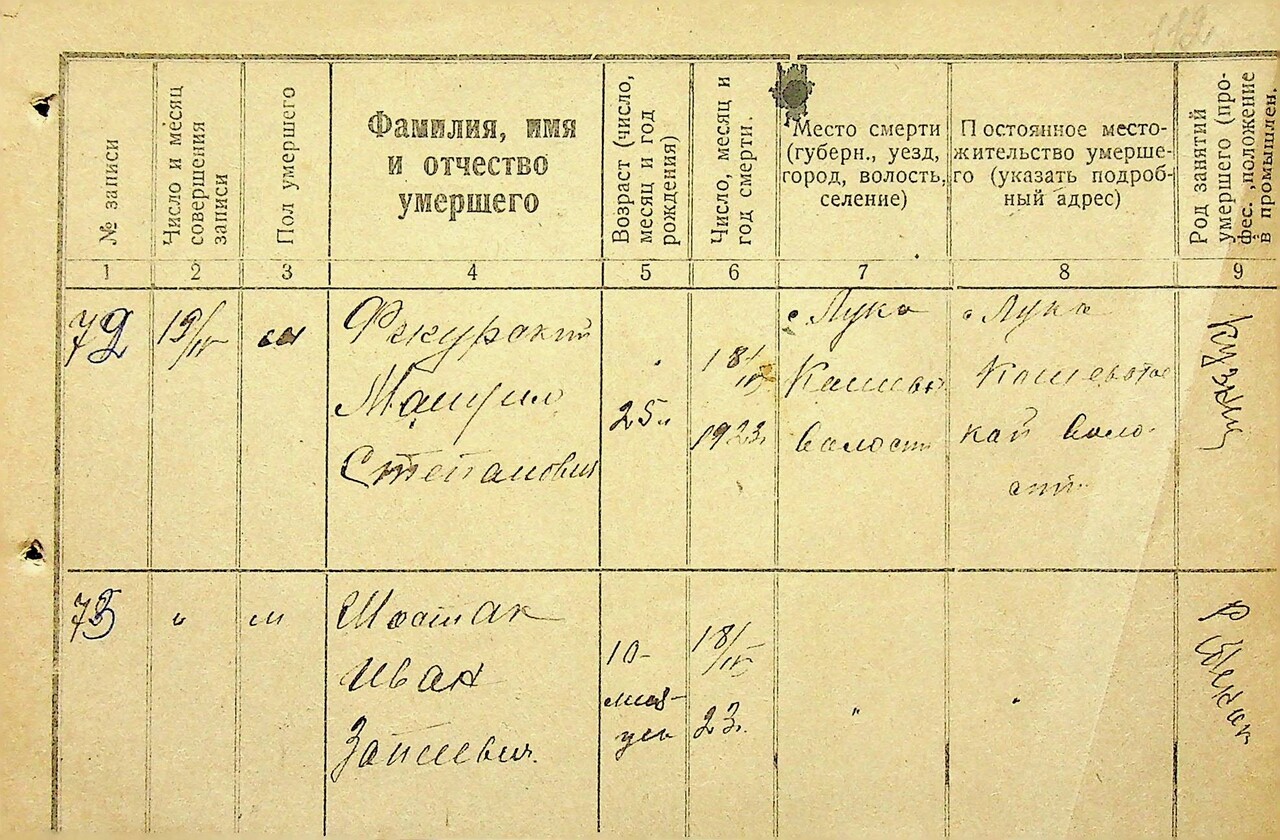 112
№ записи
Число и месяц
совершения
записи
Пол умершего
Фамилия, имя
и отчество
умершего
Возраст (число,
месяц и год
рождения)
Число, месяц и
год смерти.
Место смерти
(губерн., уезд,
город, волость,
селение)
Постоянное место-
жительство умерше-
го (указать подроб-
ный адрес)
Род занятий
умершего (про-
фес., положение
в промышлен.
1 2 3 4 5 6 7 8 9
72
19/IV
м
Степанович
25 л
18/IV
1923 г.
с Лука
волости
с Лука
кай воло-
сти
73
"
м
Иван
10
18/IV
23 г.
"
"